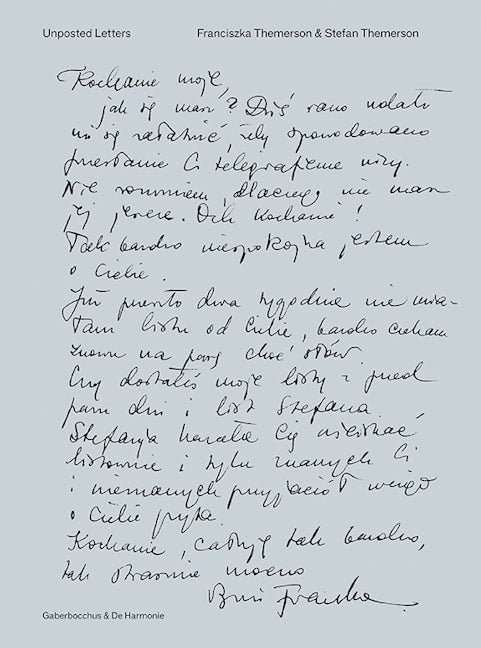 Unposted Letters
Franciszka Themerson & Stefan Themerson
Kochanie moje,
jak się masz? Dziś rano udało
mi się załatwić, żeby spowodowano
przesłanie Ci telegraficznie wizy.
Nie rozumiem, dlaczego nie masz
jej jeszcze. Och Kochanie!
Tak bardzo niespokojna jestem
o Ciebie.
Już przeszło dwa tygodnie nie mia-
łam listu od Ciebie, bardzo czekam
znowu na parę choć słów.
Czy dostałeś moje listy z przed
paru dni i list Stefana.
Stefanja kazała Cię uściskać
listownie i tylu znanych Ci
i nieznanych przyjaciół wciąż
o Ciebie pyta.
Kochanie, całuję tak bardzo,
tak strasznie mocno
Gaberbocchus & De Harmonie